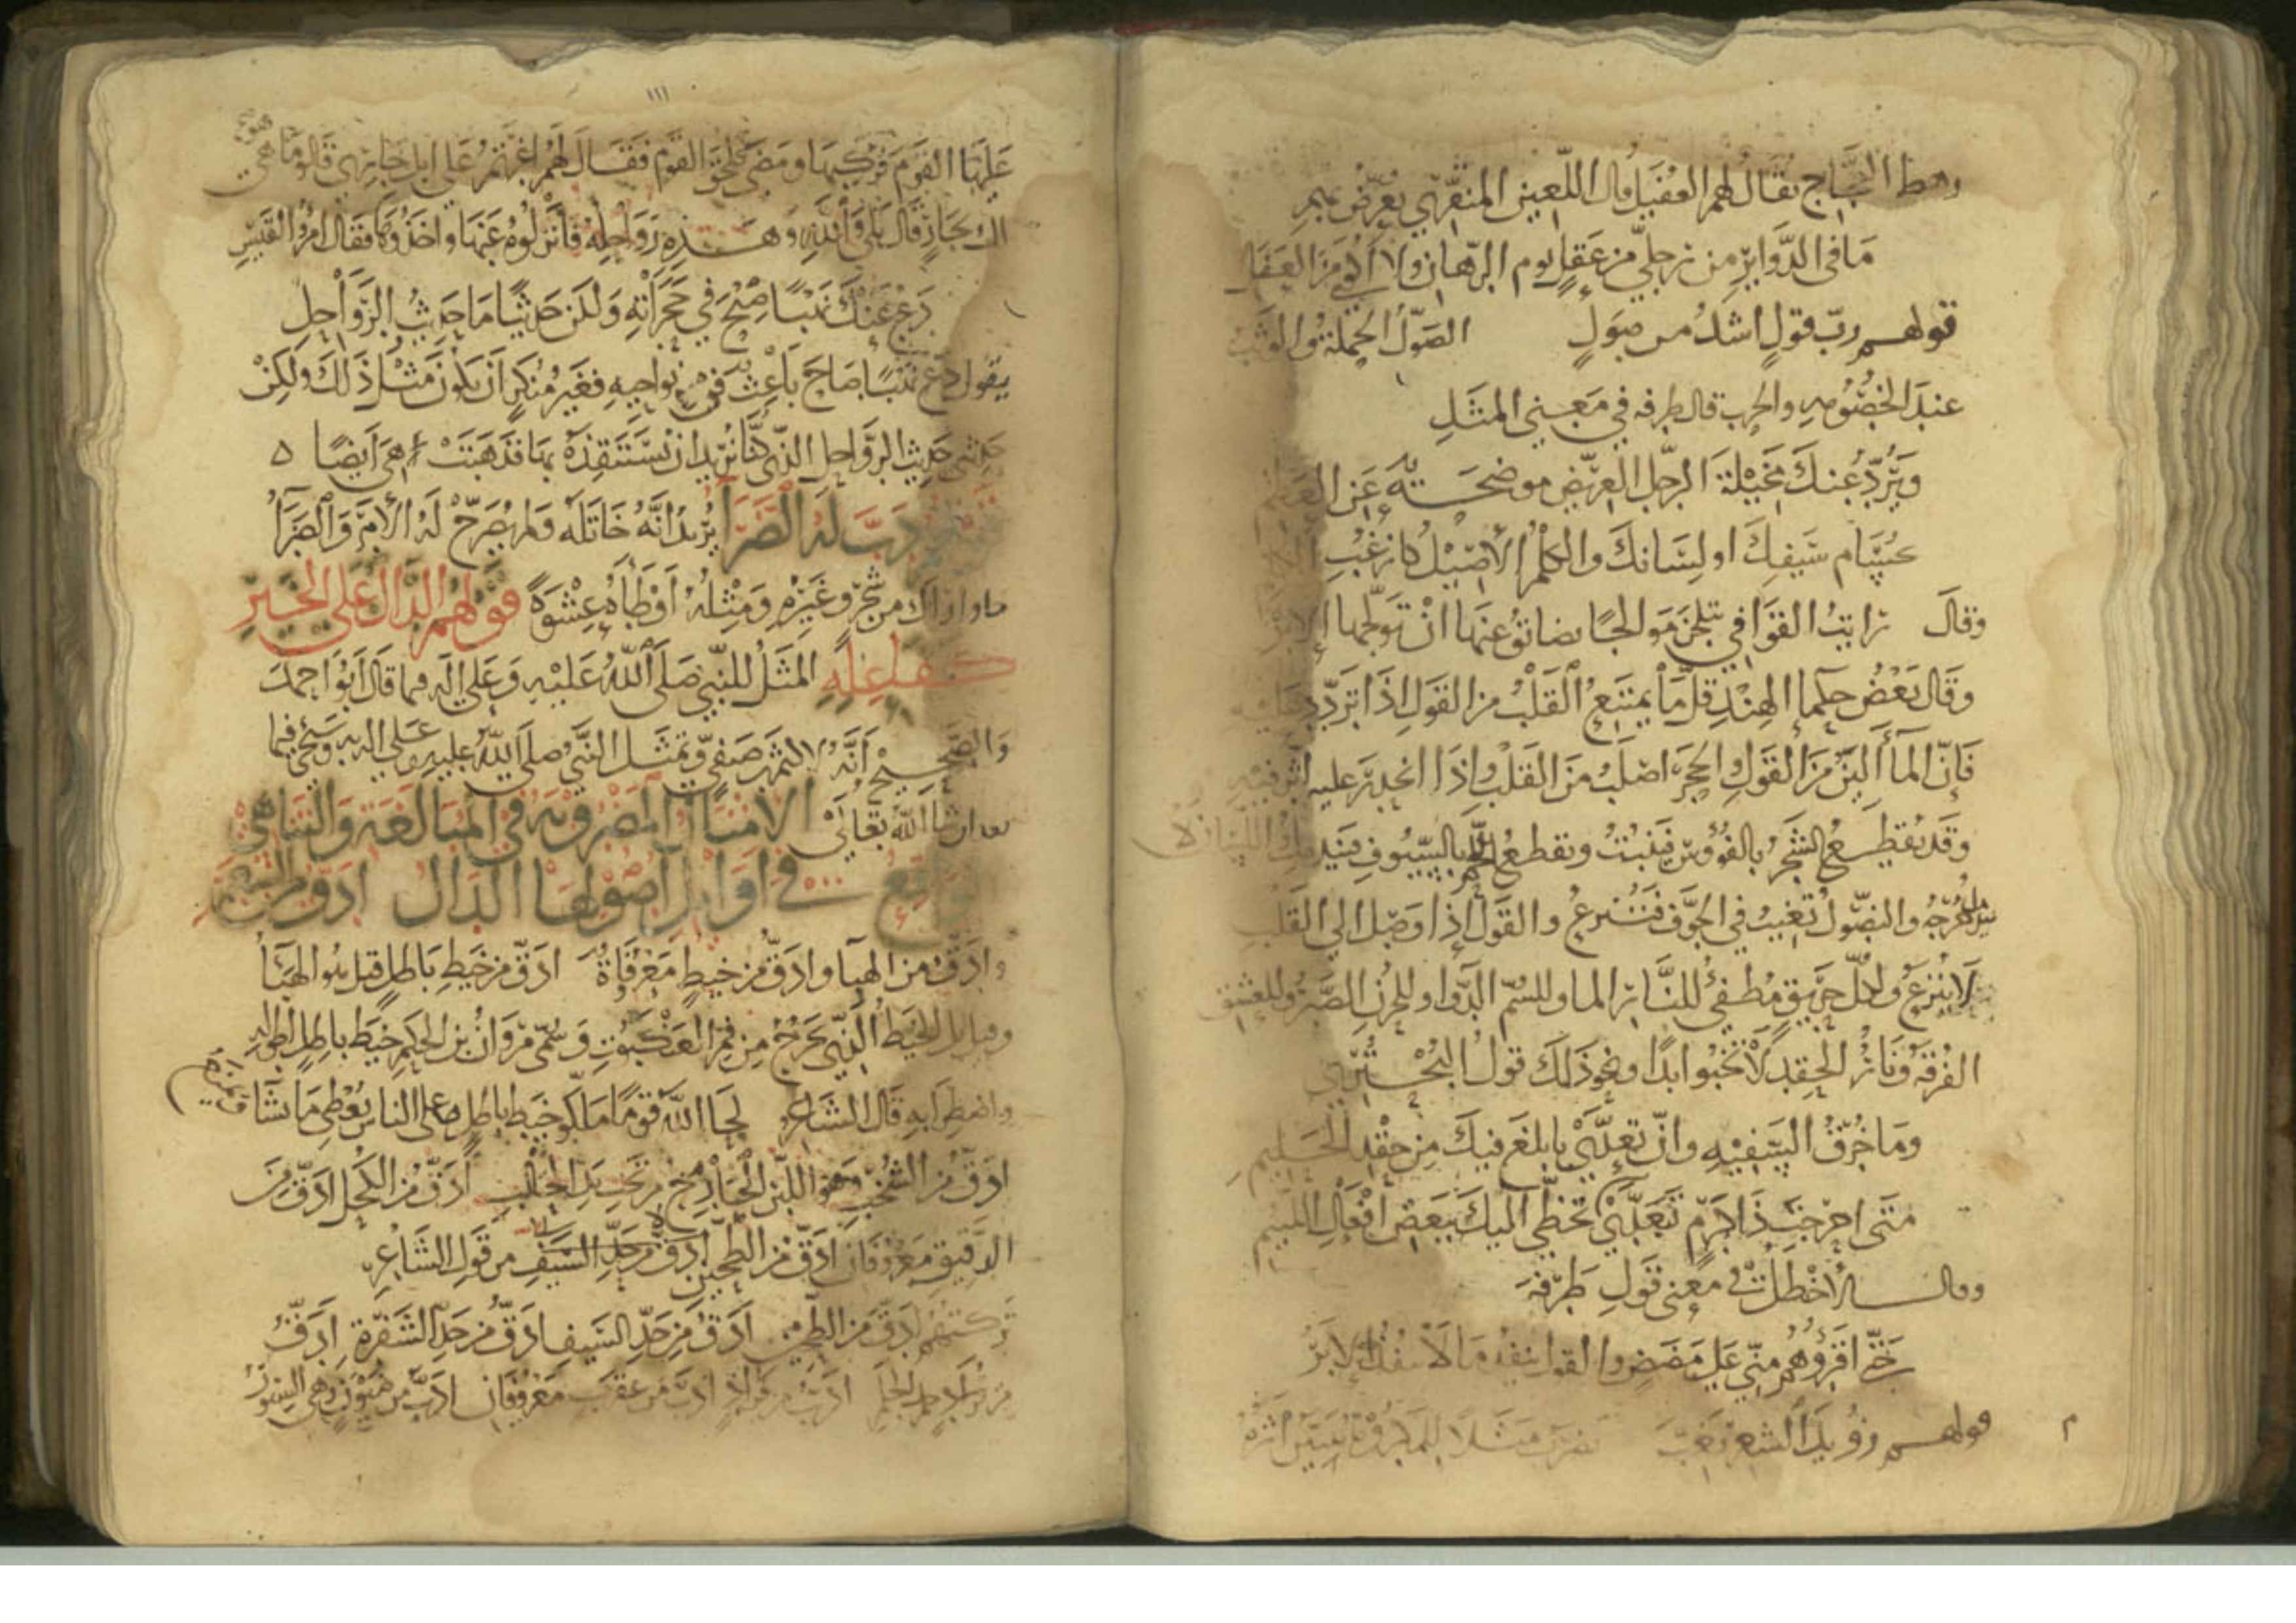 رهط العجاج يقال لهم العفيل قال اللعين المنقري يعرض بهم
ما في الدوابر من رجلي من عقل يوم الرهان ولا أكوى من العفل
قولهم رب قول اشد من صول الصول الحملة والوثب
عند الخصومه والحرب قال طرفه في معنى المثل
وترد عنك مخيلة الرجل العريض موضحة عن العظم
بحسام سيفك او لسانك والكلم الأصيل كأرغب
وقال رايت القوافي يتلجن موالجا تضايق عنها ان تولجها الابر
وقال بعض حكما الهند قل ما يمتنع القلب من القول اذا تردد عليه
فإن الماء الين من القول والحجر اصلب من القلب واذا انحدر عليه اثر فيه
وقد يقطع الشجر بالفؤوس فينبت ويقطع اللحم بالسيوف فيندمل واللسان لا
يندمل جرحه والنصول تغيب في الجوف فتنزع والقول إذا وصل الى القلب
لا ينزع ولكل حريق مطفئ للنار الماء وللسم الدواء وللحزن الصبر وللعشق
الفرقة ونار الحقد لا تخبوا ابدا ونحو ذلك قول البحتري
وما خرق السفيه وان تعدى بابلغ فيك من حقد الحليم
متى احرجت ذا كرم تعدى تخطى اليك ببعض افعال اللئيم
وقال الأخطل في معنى قول طرفة
حتى اقروا وهم مني على مضض والقول ينفذ ما لا تنفذ الابر
قولهم رويد الشعر يغب يضرب مثلا للمكروه يتبين اثره
١١١
عليها القوم فركبها ومضى فلحق القوم فقال لهم اغرتم على ابل جاري قالوا ما هي
لك بجار قال بلى والله وهذه رواحله فأنزلوه عنها واخذوها فقال امرؤ القيس
دع عنك نهبا صيح في حجراته ولكن حديثا ما حديث الرواحل
يقول دع نهبا صاح باعث في نواحيه فغير منكر ان يكون مثل ذلك ولكن
حدثني حديث الرواحل التي كنا نريد ان نستنقذه بها فذهبت هي أيضا
دب له الضراء يريد انه خاتله ولم يصرح له الأمر والضراء
ما واراك من شجر وغيره ومثله أوطأه عشوة قولهم الدال على الخير
كفاعله المثل للنبي صلى الله عليه وعلى اله فيما قال أبو احمد
والصحيح أنه لاكثم بن صيفي وتمثل النبي صلى الله عليه وعلى اله به وسيجئ فيما
بعد ان شا الله تعالى الامثال المضروبة في المبالغة والتناهي
الواقع في اوايل اصولها الدال ادق من الشعر
وادق من الهبا وادق من خيط معروفاة ادق من خيط باطل قيل هو الهباء
وقيل بل الخيط الذي يخرج من فم العنكبوت وسمي مروان بن الحكم خيط باطل لطوله
واضطرابه قال الشاعر لحا الله قوما ملكوا خيط باطل على الناس يعطي ما يشا ويمنع
ادق من الشخب وهو اللبن الخارج من تحت يد الحالب أدق من الكحل ادق من
الدقيق معروفان ادق من الطحين ادق من حد السيف من قول الشاعر
تركتهم ادق من الطحين ادق من حد السيف ادق من حد الشفرة ادق
ادب من قراد ادب من عقرب معروفان ادب من ضيون وهي السنور